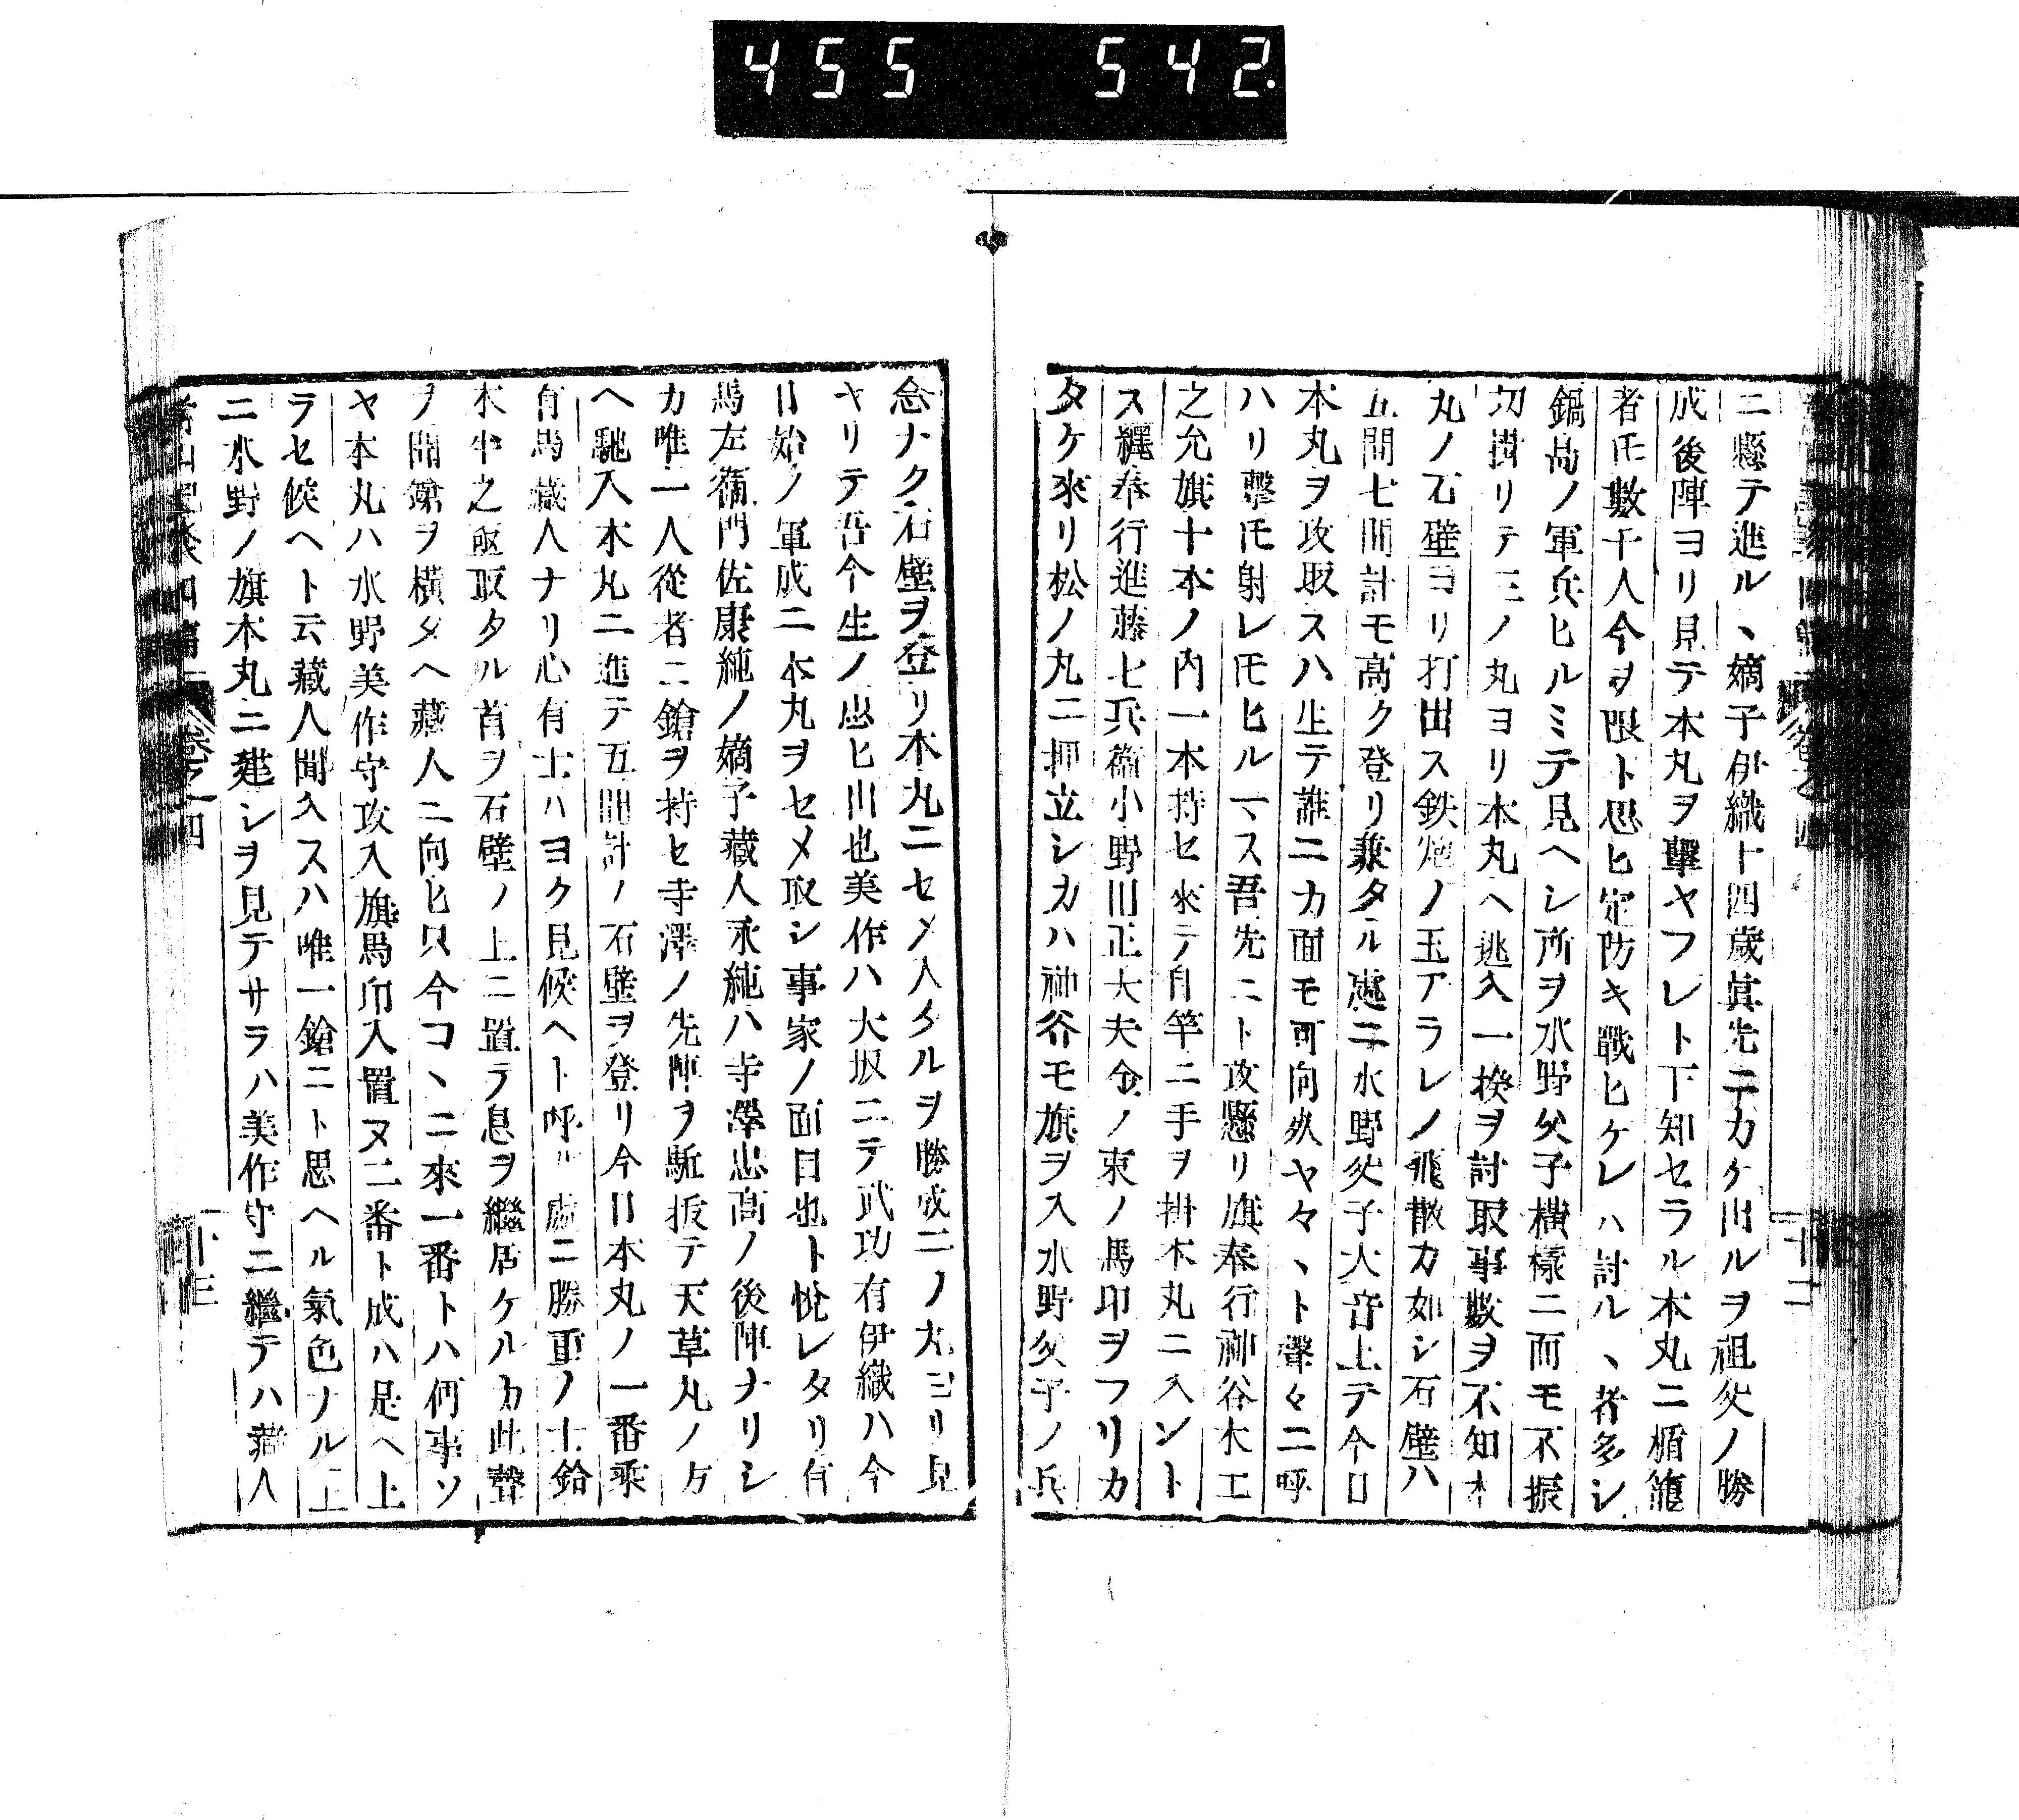 455 542
ニ懸テ進ル丶嫡子伊織十四歳眞先ニカケ出ルヲ祖父ノ勝
成後陣ヨリ見テ本丸ヲ擊ヤフレト下知セラル本丸ニ楯籠
者𪜈數千人今ヲ限ト思ヒ定防キ戰ヒケレハ討ル丶者多シ
鍋島ノ軍兵ヒルミテ見ヘシ所ヲ水野父子横樣ニ而モ不振
切掛リテ三ノ丸ヨリ本丸ヘ逃入一揆ヲ討取事數ヲ不知本
丸ノ石壁ヨリ打出ス鉄炮ノ玉アラレノ飛散カ如シ石壁ハ
五間七間計モ高ク登リ兼タル處ニ水野父子大音上テ今日
本丸ヲ攻取スハ生テ誰ニカ面モ可向欤ヤ々丶ト聲々ニ呼
ハリ擊𪜈射レ𪜈ヒルマス吾先ニト攻懸リ旗奉行神谷木工
之允旗十本ノ内一本持セ來テ自竿ニ手ヲ掛本丸ニ入ント
ス纒奉行進藤七兵衞小野川正大夫金ノ束ノ馬印ヲフリカ
タケ來リ松ノ丸ニ押立シカハ神谷モ旗ヲ入水野父子ノ兵
念ナク石壁ヲ登リ本丸ニセメ入タルヲ勝成二ノ丸ヨリ見
ヤリテ吾今生ノ思ヒ出也美作ハ大坂ニテ武功有伊織ハ今
日始ノ軍成ニ本丸ヲセメ取シ事家ノ面目也ト悅レタリ有
馬左衞門佐康純ノ嫡子藏人永純ハ寺澤忠高ノ後陣ナリシ
カ唯一人從者ニ鎗ヲ持セ寺澤ノ先陣ヲ駈拔テ天草丸ノ方
ヘ馳入本丸ニ進テ五間計ノ石壁ヲ登リ今日本丸ノ一番乘
有馬藏人ナリ心有士ハヨク見候ヘト呼ル處ニ勝重ノ士鈴
木半之亟取タル首ヲ石壁ノ上ニ置テ息ヲ繼居ケルカ此聲
ヲ聞鎗ヲ横タヘ藏人ニ向ヒ只今コ丶ニ來一番トハ何事ソ
ヤ本丸ハ水野美作守攻入旗馬印入置ヌ二番ト成ハ是ヘ上
ラセ候ヘト云藏人聞入スハ唯一鎗ニト思ヘル氣色ナル上
ニ水野ノ旗本丸ニ建シヲ見テサラハ美作守ニ繼テハ藏人
常山紀談四編 卷之四 十三